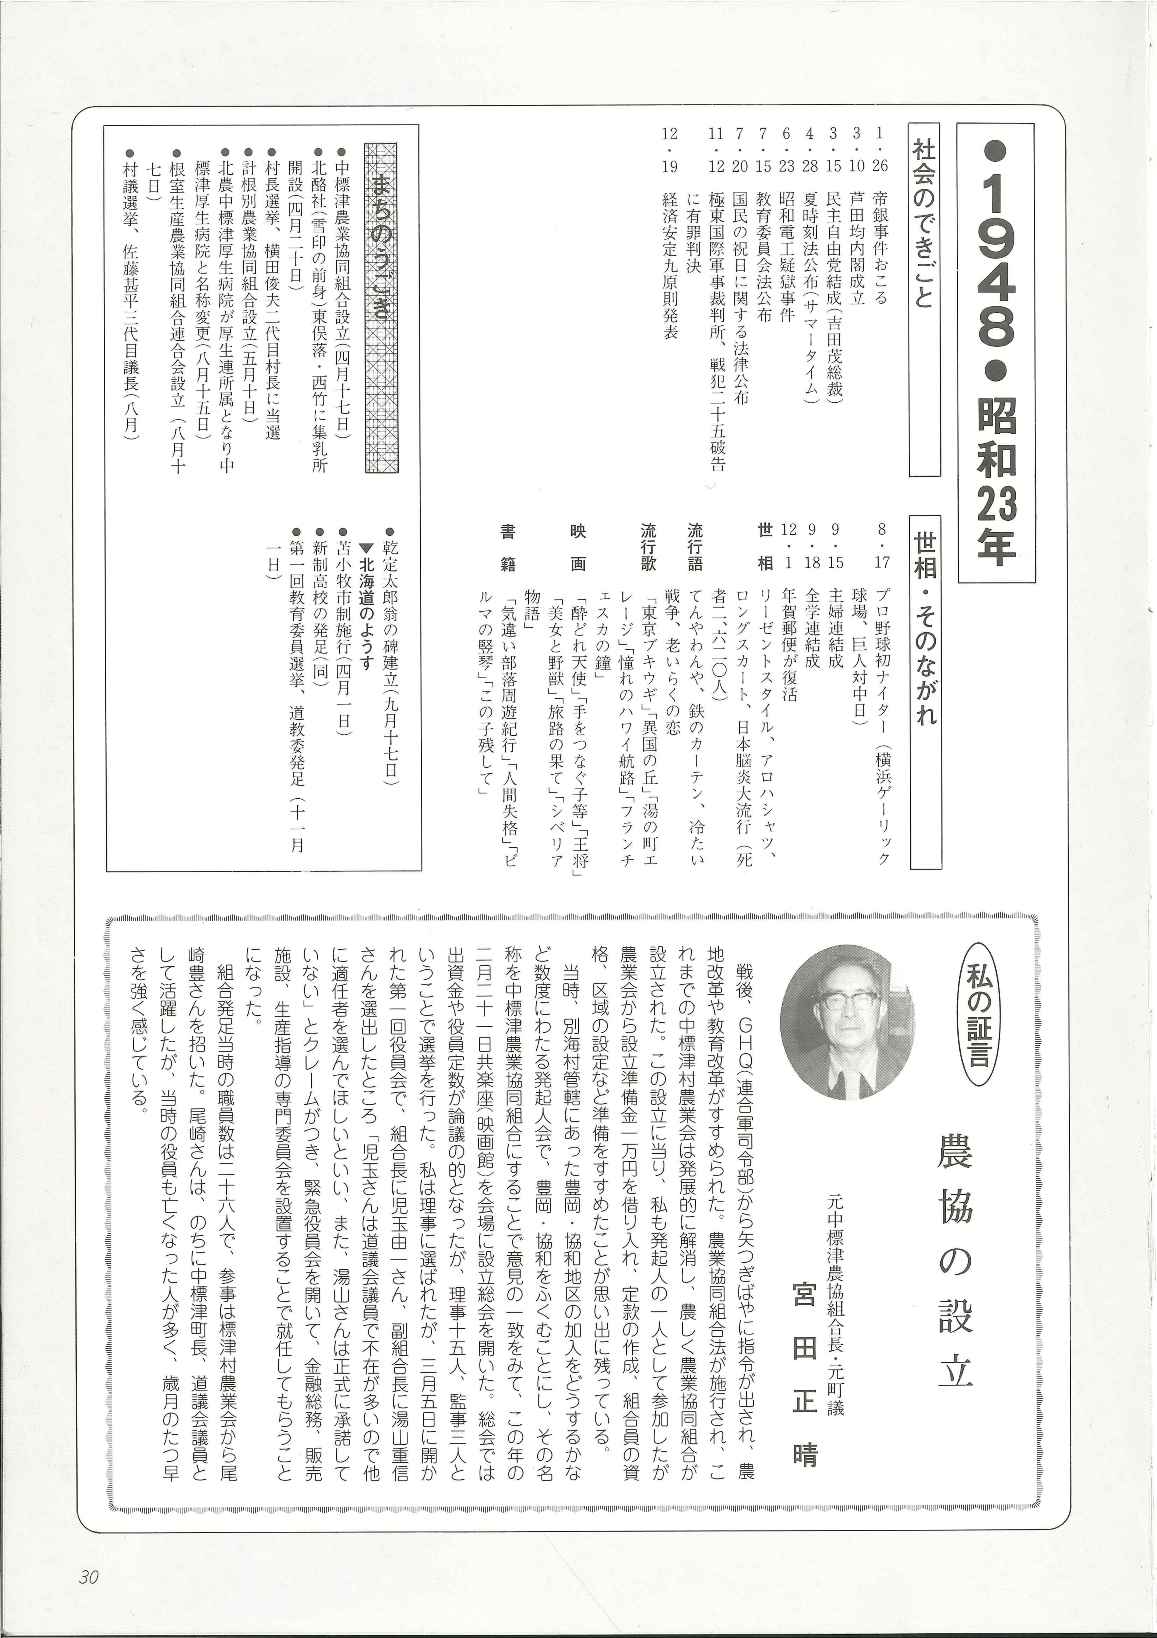 ●1948●昭和23年
社会のできごと
1・26 帝銀事件おこる
3・10 芦田均内閣成立
3・15 民主自由党結成(吉田茂総裁)
4・28 夏時刻法公布(サマータイム)
6・23 昭和電工疑獄事件
7・15 教育委員会法公布
7・20 国民の祝日に関する法律公布
11・12 極東国際軍事裁判所、戦犯二十五破告
に有罪判決
12・19 経済安定九原則発表
世相・そのながれ
8・17 プロ野球初ナイター(横浜ゲーリック
球場、巨人対中日)
9・15 主婦連結成
9・18 全学連結成
12・1 年賀郵便が復活
世相 リーゼントスタイル、アロハシャツ、
ロングスカート、日本脳炎大流行(死
者二、六二〇人)
流行語 てんやわんや、鉄のカーテン、冷たい
戦争、老いらくの恋
流行歌 「東京ブキウギ」「異国の丘」「湯の町エ
レージ」「憧れのハワイ航路」「フランチ
ェスカの鐘」
映画 「酔どれ天使」「手をつなぐ子等」「王将」
「美女と野獣」「旅路の果て」「シベリア
物語」
書籍 「気違い部落周遊紀行」「人間失格」「ビ
ルマの竪琴」「この子残して」
まちのうごき
●中標津農業協同組合設立(四月十七日)
●北酪社(雪印の前身)東俣落・西竹に集乳所
開設(四月二十日)
●村長選挙、横田俊夫二代目村長に当選
●計根別農業協同組合設立(五月十日)
●北農中標津厚生病院が厚生連所属となり中
標津厚生病院と名称変更(八月十五日)
●根室生産農業協同組合連合会設立(八月十
七日)
●村議選挙、佐藤甚平三代目議長(八月)
●乾定太郎翁の碑建立(九月十七日)
▼北海道のようす
●苫小牧市制施行(四月一日)
●新制高校の発足(同)
●第一回教育委員選挙、道教委発足(十一月
一日)
私の証言
農協の設立
元中標津農協組合長・元町議
宮田正晴
戦後、GHQ(連合軍司令部)から矢つぎばやに指令が出され、農
地改革や教育改革がすすめられた。農業協同組合法が施行され、こ
れまでの中標津村農業会は発展的に解消し、農しく農業協同組合が
設立された。この設立に当り、私も発起人の一人として参加したが
農業会から設立準備金一万円を借り入れ、定款の作成、組合員の資
格、区域の設定など準備をすすめたことが思い出に残っている。
当時、別海村管轄にあった豊岡・協和地区の加入をどうするかな
ど数度にわたる発起人会で、豊岡・協和をふくむことにし、その名
称を中標津農業協同組合にすることで意見の一致をみて、この年の
二月二十一日共楽座(映画館)を会場に設立総会を開いた。総会では
出資金や役員定数が論議の的となったが、理事十五人、監事三人と
いうことで選挙を行った。私は理事に選ばれたが、三月五日に開か
れた第一回役員会で、組合長に児玉由一さん、副組合長に湯山重信
さんを選出したところ「児玉さんは道議会議員で不在が多いので他
に適任者を選んでほしいといい、また、湯山さんは正式に承諾して
いない」とクレームがつき、緊急役員会を開いて、金融総務、販売
施設、生産指導の専門委員会を設置することで就任してもらうこと
になった。
組合発足当時の職員数は二十六人で、参事は標津村農業会から尾
崎豊さんを招いた。尾崎さんは、のちに中標津町長、道議会議員と
して活躍したが、当時の役員も亡くなった人が多く、歳月のたつ早
さを強く感じている。
30